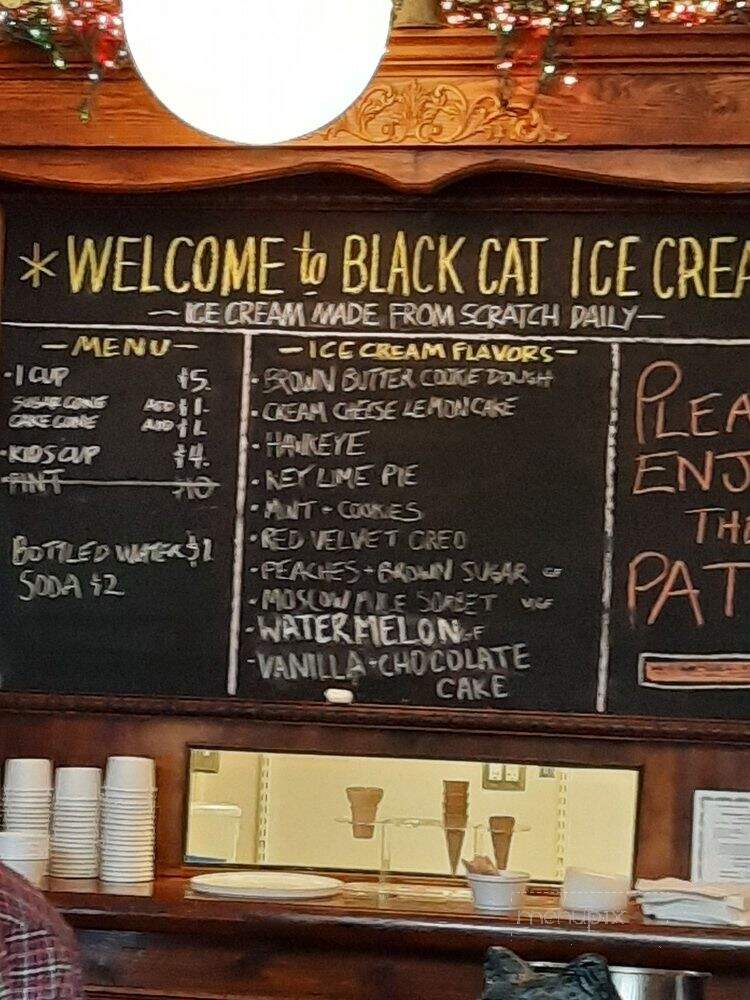 * WELCOME to BLACK CAT ICE CREA
— ICE CREAM MADE FROM SCRATCH DAILY —
— MENU —
- 1 CUP $5.
SUGAR CONE ADD $1-
CAKE CONE ADD $1.
- KIDS CUP $4.
PINT $10
BOTTLED WATER $1
SODA $2
— ICE CREAM FLAVORS —
- BROWN BUTTER COOKIE DOUGH
- CREAM CHEESE LEMON CAKE
- HAWKEYE
- KEY LIME PIE
- MINT + COOKIES
- RED VELVET OREO
- PEACHES + BROWN SUGAR GF
- MOSCOW MULE SORBET VGF
- WATERMELON GF
- VANILLA + CHOCOLATE
CAKE
PLEA
ENJ
TH
PAT
menupix